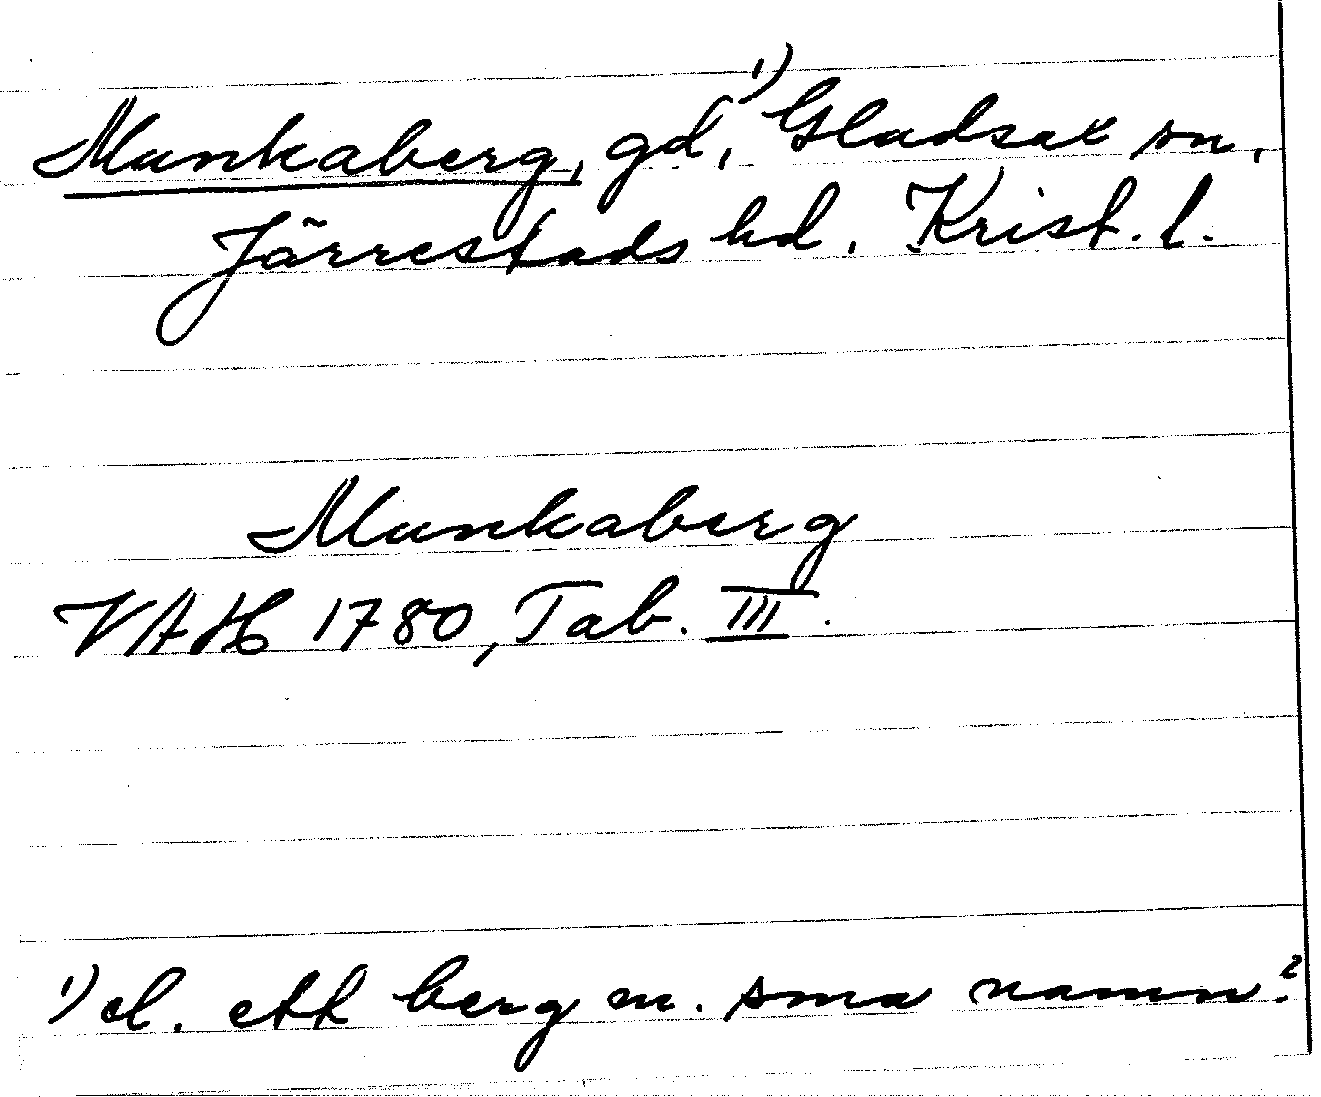 Munkaberg, gd,¹⁾ Gladsax sn,
Järrestads hd. Krist. l.
Munkaberg
VAH 1780, Tab. III.
¹⁾ el. ett berg m. sma namn?